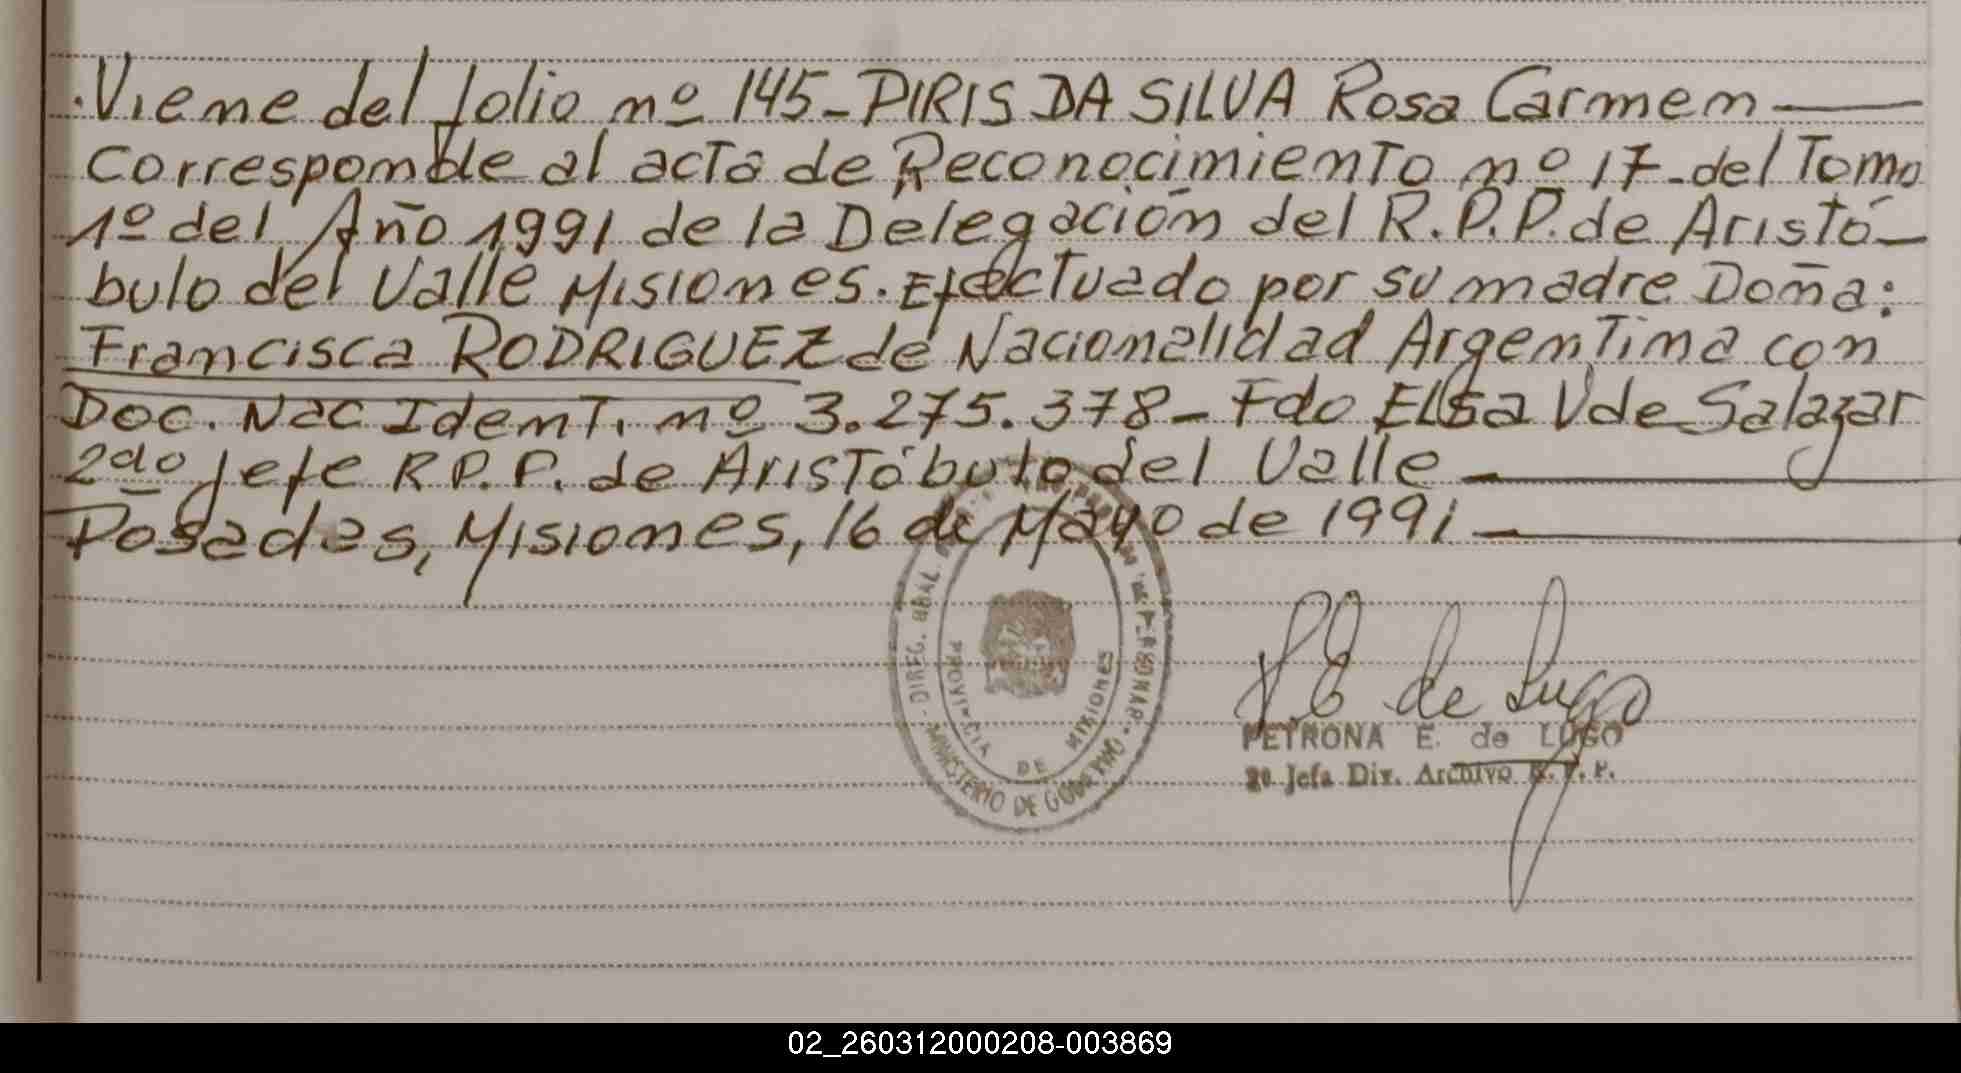 Viene del folio nº 145-PIRIS DA SILVA Rosa Carmen
Corresponde al acta de Reconocimiento nº 17-del Tomo
1º del Año 1991 de la Delegación del R.P.P. de Aristó-
bulo del Valle Misiones. Efectuado por su madre Doña:
Francisca RODRIGUEZ de Nacionalidad Argentina con
Doc. Nac Ident. nº 3.275.378- Fdo ELSa V de Salazar
2do Jefe R.P.P. de Aristóbulo del Valle-
Posadas, Misiones, 16 de Mayo de 1991-
DIREC. GRAL.
PROVINCIA DE MISIONES
MINISTERIO DE GOBIERNO
P E de Lugo
PETRONA E. de LUGO
2º Jefa Div. Archivo R.P.P.
02_260312000208-003869